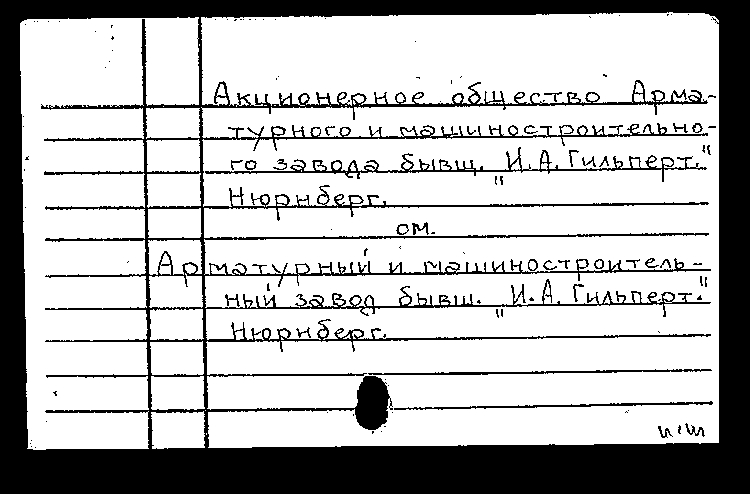 Акционерное общество Арма-
турного и машиностроительно-
го завода бывш. "И.А. Гильперт."
Нюрнберг.
см.
Арматурный и машиностроитель-
ный завод бывш. "И.А. Гильперт."
Нюрнберг.